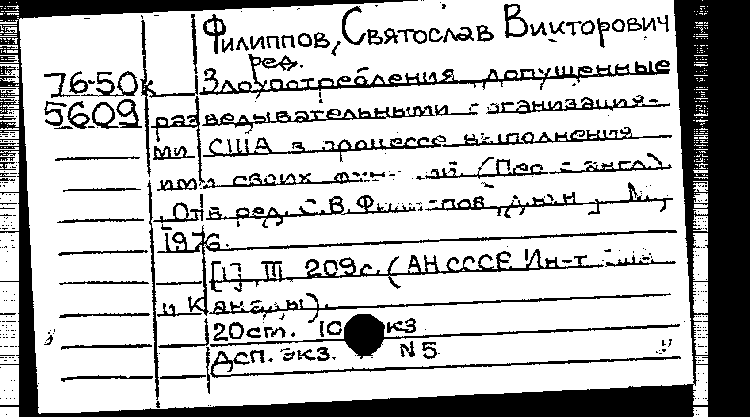 Филиппов, Святослав Викторович
ред.
76-50к Злоупотребления, допущенные
5609 разведывательными организация-
ми США в процессе выполнения
ими своих функций. (Пер с англ.).
Отв. ред. С.В. Филиппов, М.,
1976.
[1], III, 209с. (АН СССР. Ин-т США
и Канады).
20см. экз
Дсп. экз. N 5